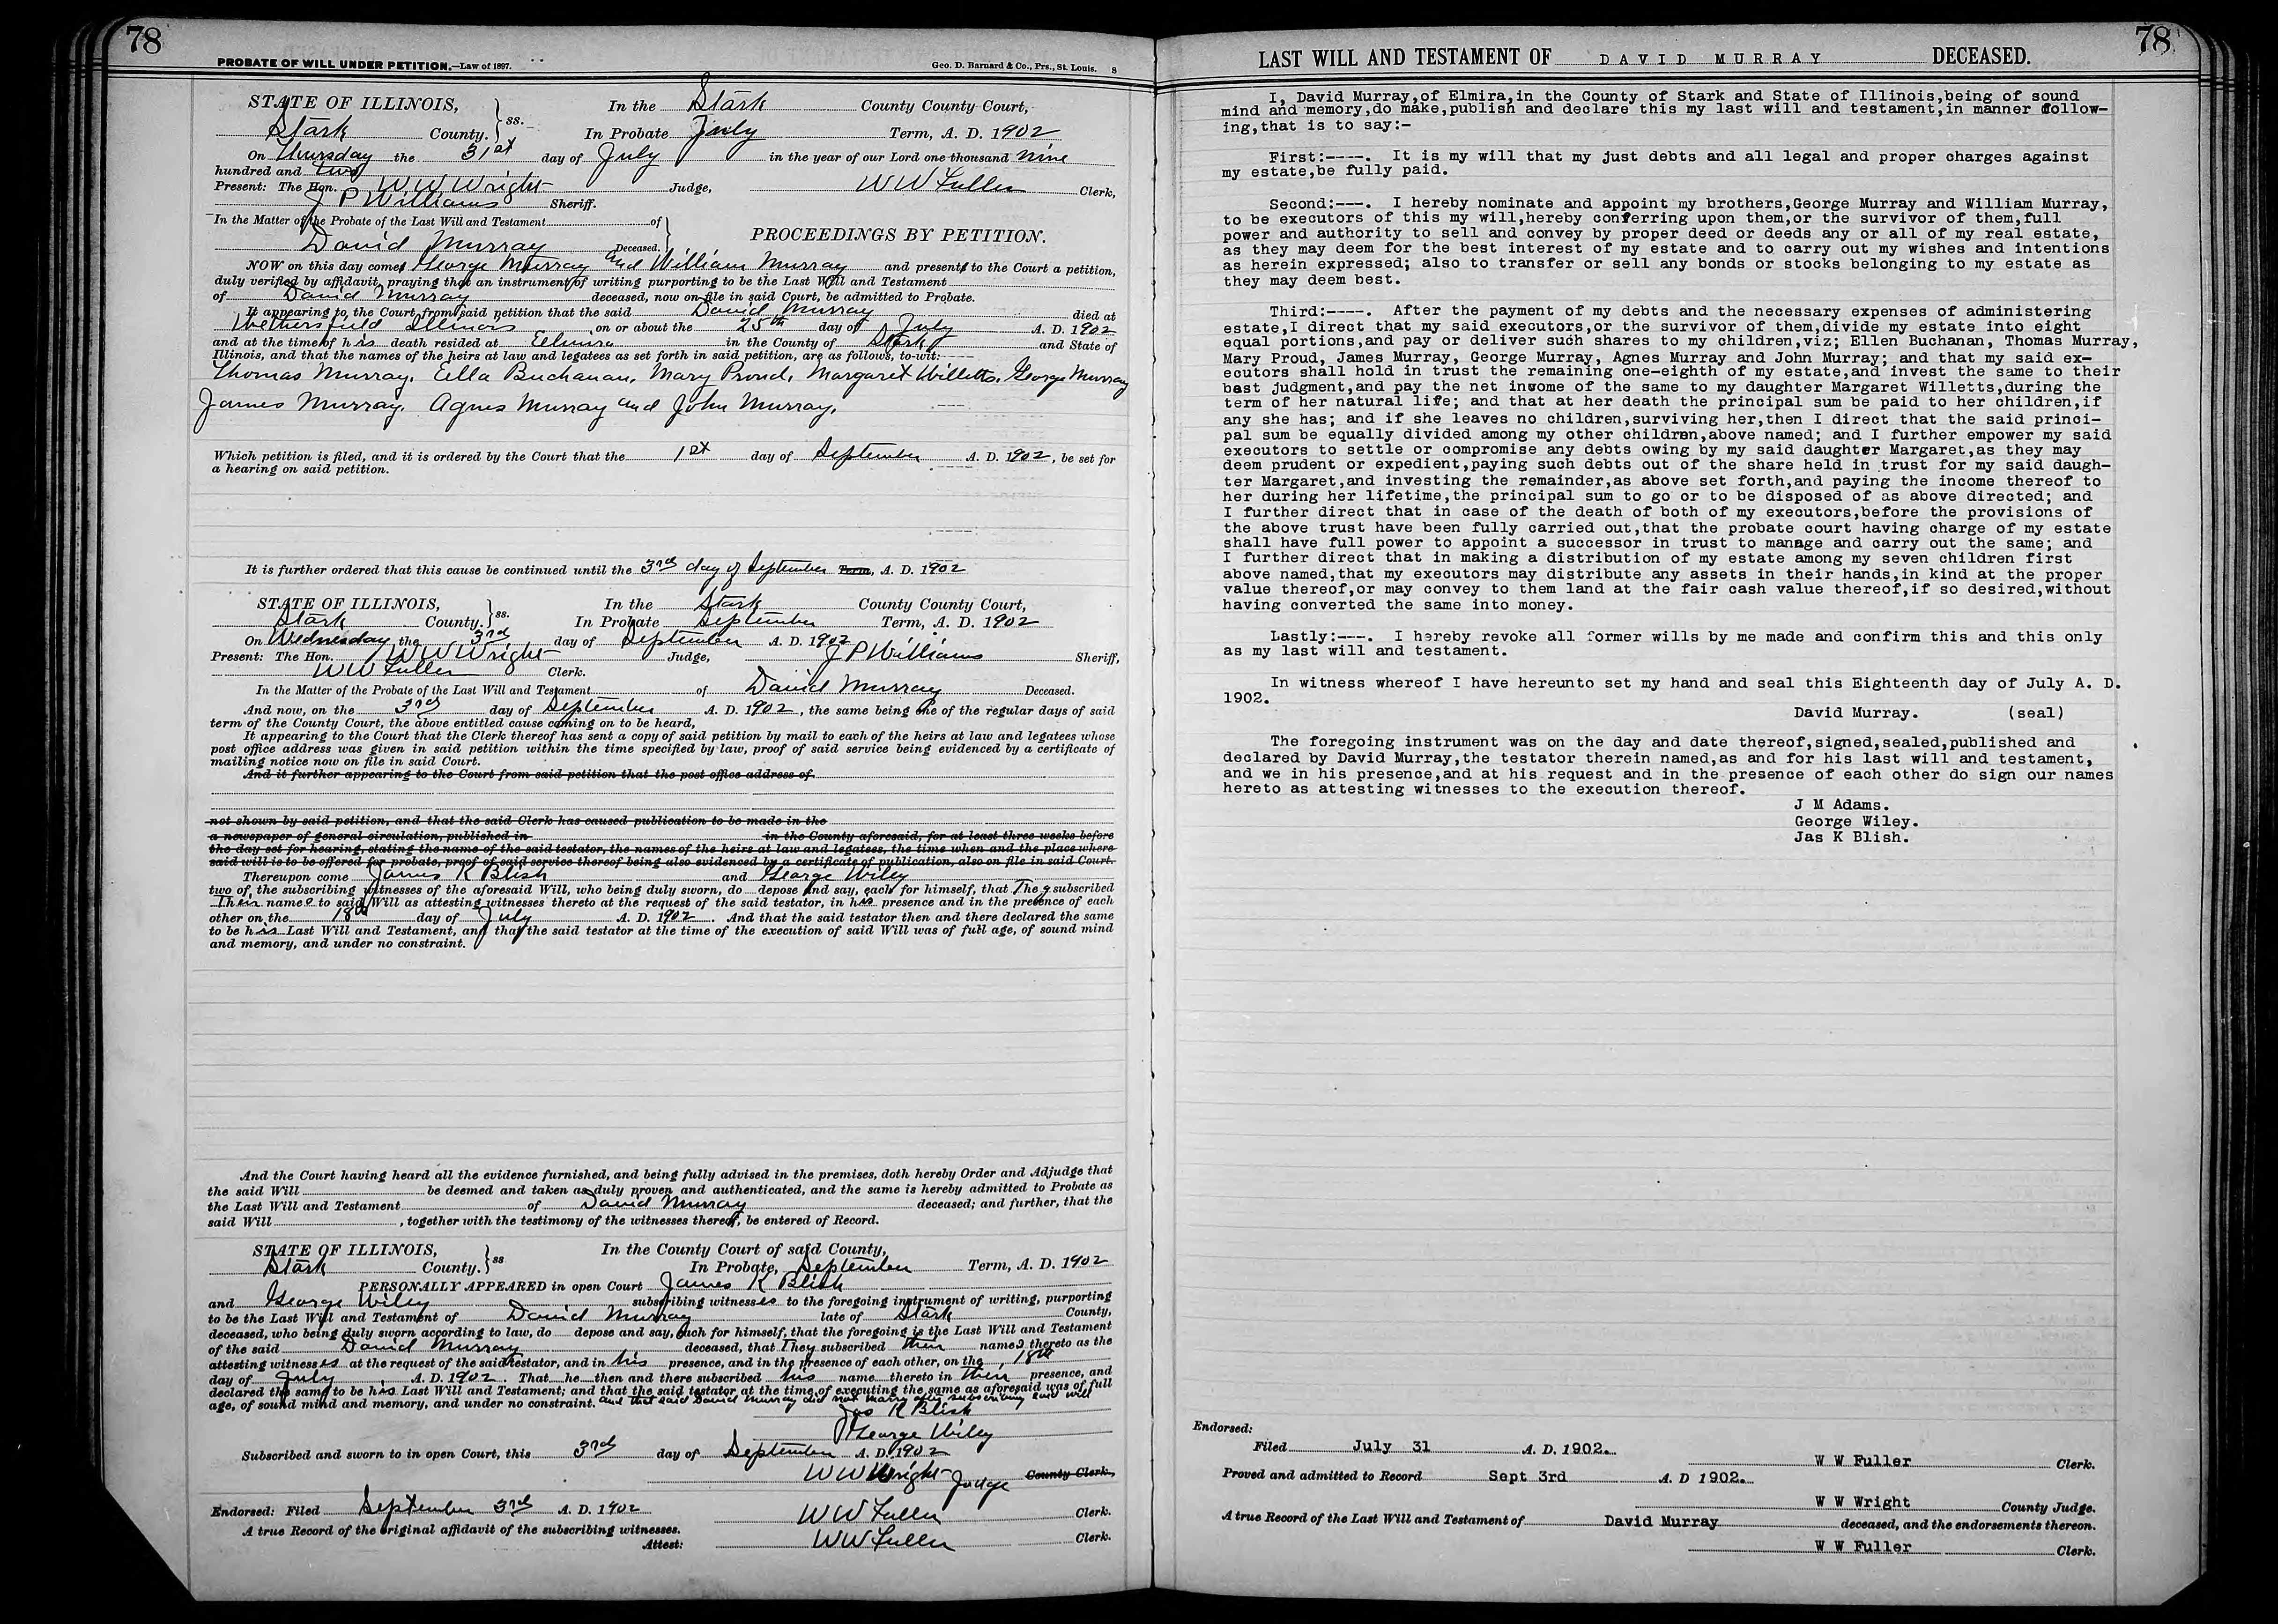 78
PROBATE OF WILL UNDER PETITION.—Law of 1897.
Geo. D. Barnard & Co., Prs., St. Louis. 8
STATE OF ILLINOIS, In the Stark County County Court,
Stark County. } ss. In Probate July Term, A. D. 1902
On Thursday the 31st day of July in the year of our Lord one thousand nine
hundred and two
Present: The Hon. W W Wright Judge, W W Fuller Clerk,
J P Williams Sheriff.
In the Matter of the Probate of the Last Will and Testament of
David Murray Deceased. } PROCEEDINGS BY PETITION.
NOW on this day come George Murray and William Murray and present to the Court a petition,
duly verified by affidavit, praying that an instrument of writing purporting to be the Last Will and Testament
of David Murray deceased, now on file in said Court, be admitted to Probate.
It appearing to the Court from said petition that the said David Murray died at
Wethersfield Illinois, on or about the 25th day of July A. D. 1902
and at the time of his death resided at Elmira in the County of Stark and State of
Illinois, and that the names of the heirs at law and legatees as set forth in said petition, are as follows, to-wit:
Thomas Murray, Ella Buchanan, Mary Proud, Margaret Willetts, George Murray
James Murray, Agnes Murray and John Murray.
Which petition is filed, and it is ordered by the Court that the 1st day of September A. D. 1902, be set for
a hearing on said petition.
It is further ordered that this cause be continued until the 3rd day of September Term, A. D. 1902
STATE OF ILLINOIS, In the Stark County County Court,
Stark County. } ss. In Probate September Term, A. D. 1902
On Wednesday the 3rd day of September A. D. 1902
Present: The Hon. W W Wright Judge, J P Williams Sheriff,
W W Fuller Clerk.
In the Matter of the Probate of the Last Will and Testament of David Murray Deceased.
And now, on the 3rd day of September A. D. 1902, the same being one of the regular days of said
term of the County Court, the above entitled cause coming on to be heard,
It appearing to the Court that the Clerk thereof has sent a copy of said petition by mail to each of the heirs at law and legatees whose
post office address was given in said petition within the time specified by law, proof of said service being evidenced by a certificate of
mailing notice now on file in said Court.
And it further appearing to the Court from said petition that the post office address of
not shown by said petition, and that the said Clerk has caused publication to be made in the
a newspaper of general circulation, published in in the County aforesaid, for at least three weeks before
the day set for hearing, stating the name of the said testator, the names of the heirs at law and legatees, the time when and the place where
said will is to be offered for probate, proof of said service thereof being also evidenced by a certificate of publication, also on file in said Court.
Thereupon come James K Blish and George Wiley
two of the subscribing witnesses of the aforesaid Will, who being duly sworn, do depose and say, each for himself, that They subscribed
Their names to said Will as attesting witnesses thereto at the request of the said testator, in his presence and in the presence of each
other on the 18th day of July A. D. 1902. And that the said testator then and there declared the same
to be his Last Will and Testament, and that the said testator at the time of the execution of said Will was of full age, of sound mind
and memory, and under no constraint.
And the Court having heard all the evidence furnished, and being fully advised in the premises, doth hereby Order and Adjudge that
the said Will be deemed and taken as duly proven and authenticated, and the same is hereby admitted to Probate as
the Last Will and Testament of David Murray deceased; and further, that the
said Will, together with the testimony of the witnesses thereof, be entered of Record.
STATE OF ILLINOIS, In the County Court of said County,
Stark County. } ss In Probate, September Term, A. D. 1902
PERSONALLY APPEARED in open Court James K Blish
and George Wiley subscribing witnesses to the foregoing instrument of writing, purporting
to be the Last Will and Testament of David Murray late of Stark County,
deceased, who being duly sworn according to law, do depose and say, each for himself, that the foregoing is the Last Will and Testament
of the said David Murray deceased, that They subscribed their names thereto as the
attesting witnesses at the request of the said testator, and in his presence, and in the presence of each other, on the 18th
day of July, A. D. 1902. That he then and there subscribed his name thereto in their presence, and
declared the same to be his Last Will and Testament; and that the said testator at the time of executing the same as aforesaid was of full
age, of sound mind and memory, and under no constraint. and that said David Murray did not marry after subscribing said will
Jas K Blish
George Wiley
Subscribed and sworn to in open Court, this 3rd day of September A. D. 1902
W W Wright Judge County Clerk,
Endorsed: Filed September 3rd A. D. 1902 W W Fuller Clerk.
A true Record of the original affidavit of the subscribing witnesses.
Attest: W W Fuller Clerk.
78
LAST WILL AND TESTAMENT OF DAVID MURRAY DECEASED.
I, David Murray,of Elmira,in the County of Stark and State of Illinois,being of sound
mind and memory,do make,publish and declare this my last will and testament,in manner follow-
ing,that is to say:-
First:----. It is my will that my just debts and all legal and proper charges against
my estate,be fully paid.
Second:---. I hereby nominate and appoint my brothers,George Murray and William Murray,
to be executors of this my will,hereby conferring upon them,or the survivor of them,full
power and authority to sell and convey by proper deed or deeds any or all of my real estate,
as they may deem for the best interest of my estate and to carry out my wishes and intentions
as herein expressed; also to transfer or sell any bonds or stocks belonging to my estate as
they may deem best.
Third:----. After the payment of my debts and the necessary expenses of administering
estate,I direct that my said executors,or the survivor of them,divide my estate into eight
equal portions,and pay or deliver such shares to my children,viz; Ellen Buchanan, Thomas Murray,
Mary Proud, James Murray, George Murray, Agnes Murray and John Murray; and that my said ex-
ecutors shall hold in trust the remaining one-eighth of my estate,and invest the same to their
best judgment,and pay the net income of the same to my daughter Margaret Willetts,during the
term of her natural life; and that at her death the principal sum be paid to her children,if
any she has; and if she leaves no children,surviving her,then I direct that the said princi-
pal sum be equally divided among my other children,above named; and I further empower my said
executors to settle or compromise any debts owing by my said daughter Margaret,as they may
deem prudent or expedient,paying such debts out of the share held in trust for my said daugh-
ter Margaret,and investing the remainder,as above set forth,and paying the income thereof to
her during her lifetime,the principal sum to go or to be disposed of as above directed; and
I further direct that in case of the death of both of my executors,before the provisions of
the above trust have been fully carried out,that the probate court having charge of my estate
shall have full power to appoint a successor in trust to manage and carry out the same; and
I further direct that in making a distribution of my estate among my seven children first
above named,that my executors may distribute any assets in their hands,in kind at the proper
value thereof,or may convey to them land at the fair cash value thereof,if so desired,without
having converted the same into money.
Lastly:---. I hereby revoke all former wills by me made and confirm this and this only
as my last will and testament.
In witness whereof I have hereunto set my hand and seal this Eighteenth day of July A. D.
1902.
David Murray. (seal)
The foregoing instrument was on the day and date thereof,signed,sealed,published and
declared by David Murray,the testator therein named,as and for his last will and testament,
and we in his presence,and at his request and in the presence of each other do sign our names
hereto as attesting witnesses to the execution thereof.
J M Adams.
George Wiley.
Jas K Blish.
Endorsed:
Filed July 31 A. D. 1902.
W W Fuller Clerk.
Proved and admitted to Record Sept 3rd A. D 1902.
W W Wright County Judge.
A true Record of the Last Will and Testament of David Murray deceased, and the endorsements thereon.
W W Fuller Clerk.